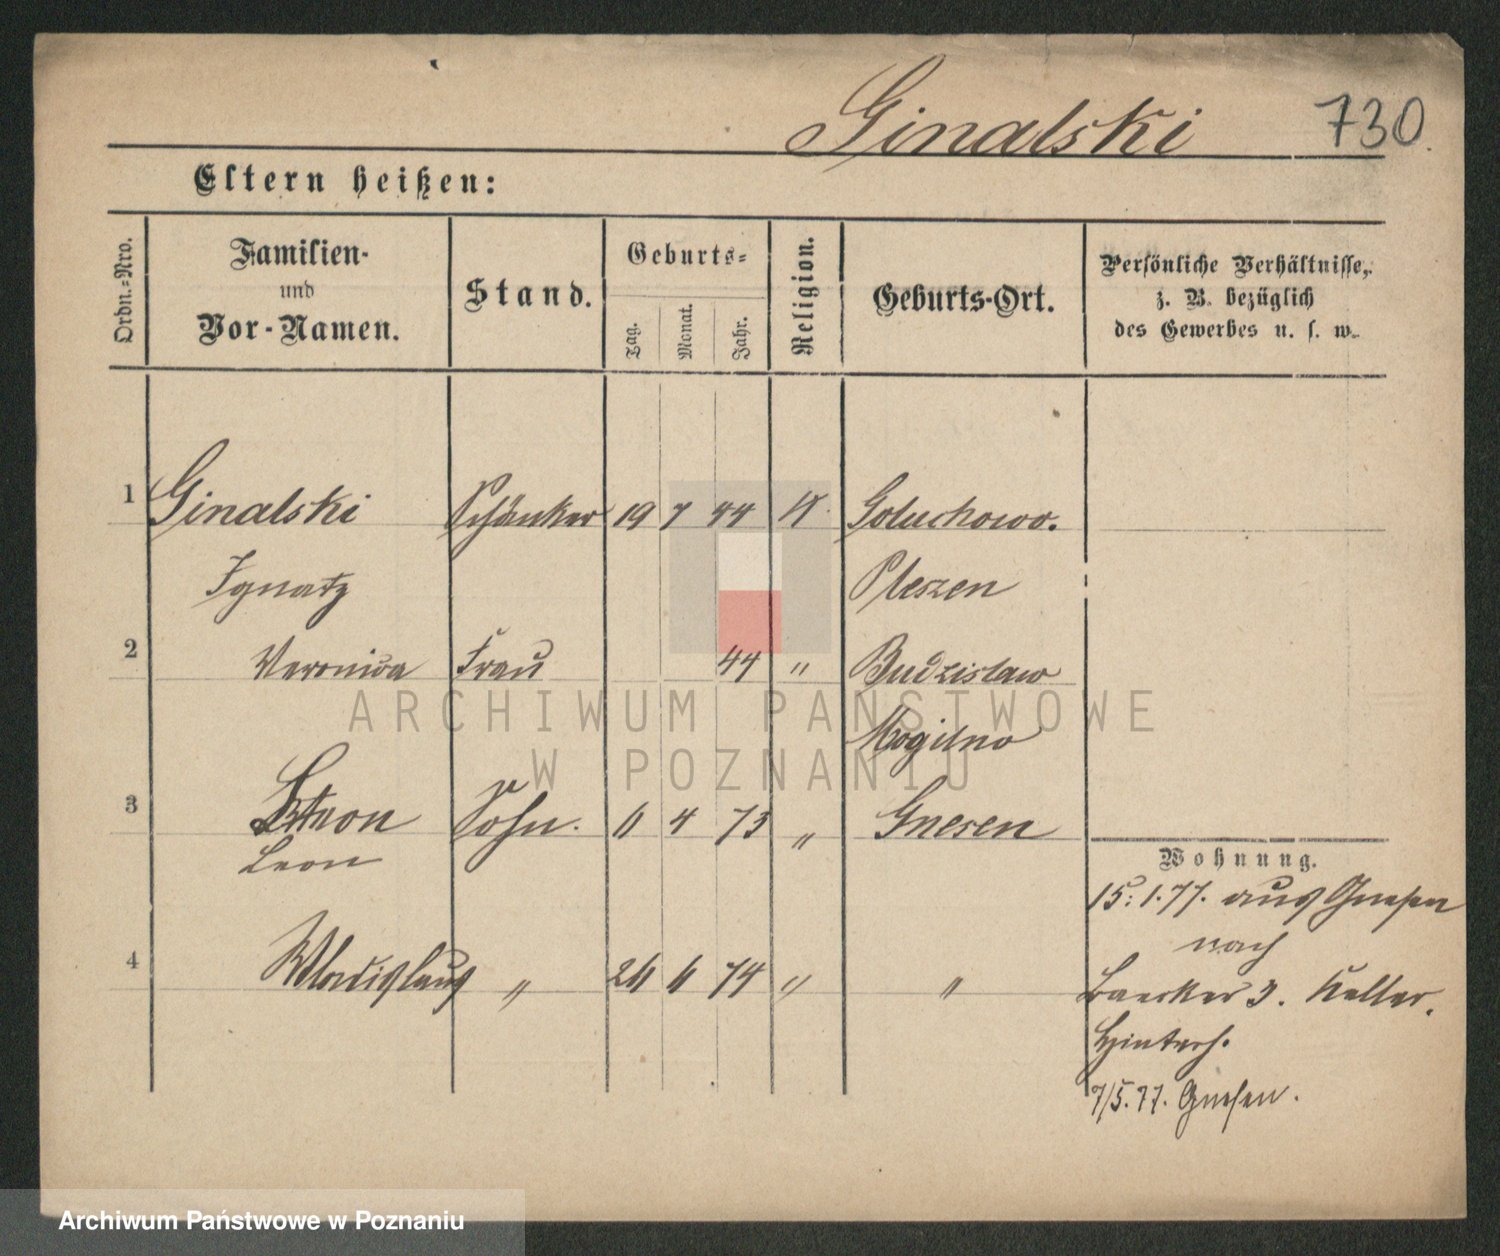 Ginalski 730.
Eltern heißen:
Ordn.-Nro.
Familien-
und
Vor-Namen.
Stand.
Geburts-
Tag.
Monat.
Jahr.
Religion.
Geburts-Ort.
Persönliche Verhältnisse,
z. B. bezüglich
des Gewerbes u. s. w.
1 Ginalski Schänker 19 7 44 K. Goluchowo.
Ignatz Pleszen
2 Veronica Frau 44 " Budzislaw
Mogilno
3 Sohn. 11 4 73 " Gnesen
Leon
4 Wladislaus " 26 6 74 " "
Wohnung.
15. 1. 77. aus Gnesen
nach
3. Keller.
Hinterh.
7/5. 77. Gnesen.
ARCHIWUM PAŃSTWOWE
W POZNANIU
Archiwum Państwowe w Poznaniu